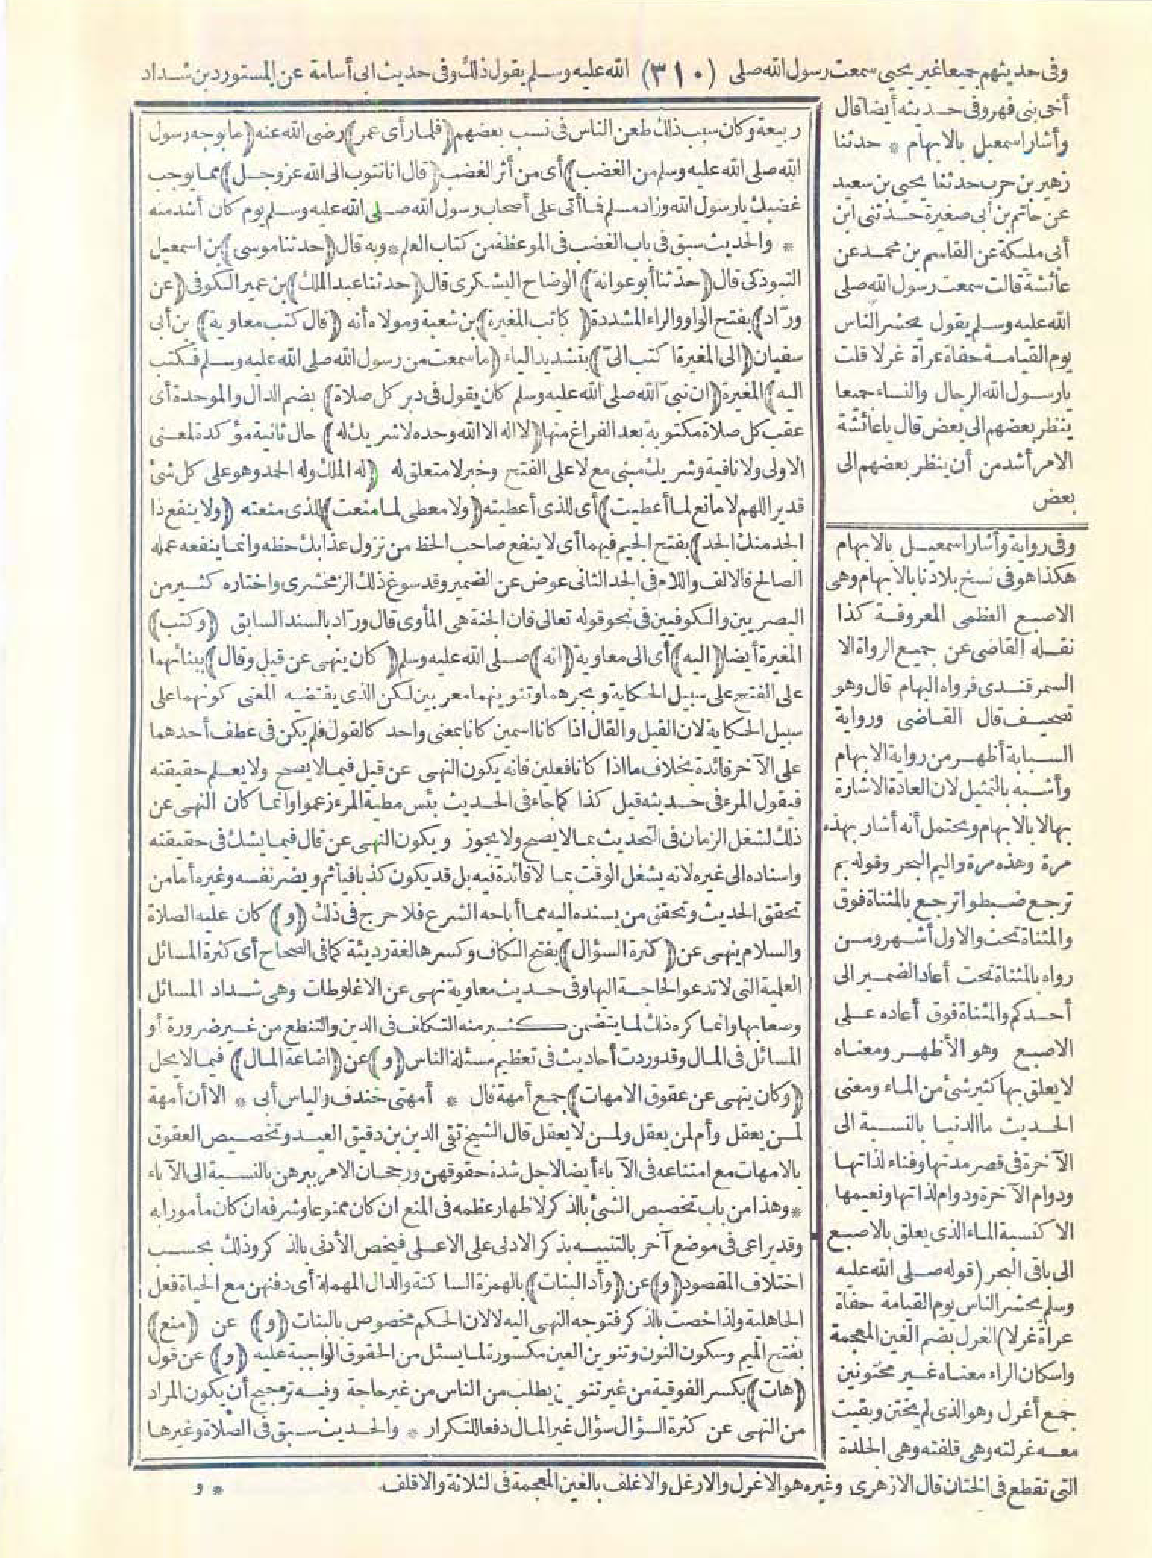 وفى حديثهم جميعا غير يحيى سمعت رسول الله صلى (٣١٠) الله عليه وسلم يقول ذلك وفى حديث ابى أسامة عن المستورد بن شداد
أخى بنى فهر وفى حديثه أيضا قال
وأشار اسمعيل بالابهام * حدثنا
زهير بن حرب حدثنا يحيى بن سعيد
عن حاتم بن أبى صغيرة حدثنى ابن
أبى مليكة عن القاسم بن محمد عن
عائشة قالت سمعت رسول الله صلى
الله عليه وسلم يقول يحشر الناس
يوم القيامة حفاة عراة غرلا قلت
يارسول الله الرجال والنساء جميعا
ينظر بعضهم الى بعض قال ياعائشة
الامر أشد من أن ينظر بعضهم الى
بعض
وفى رواية وأشار اسمعيل بالابهام
هكذا هو فى نسخ بلادنا بالابهام وهى
الاصبع العظمى المعروفة كذا
نقله القاضى عن جميع الرواة الا
السمرقندى فرواه البهام قال وهو
تصحيف قال القاضى ورواية
السبابة أظهر من رواية الابهام
وأشبه بالتمثيل لان العادة الاشارة
بها لا بالابهام ويحتمل أنه أشار بهذه
مرة وهذه مرة واليم البحر وقوله بم
ترجع ضبطوا ترجع بالمثناة فوق
والمثناة تحت والاول أشهر ومن
رواه بالمثناة تحت أعاد الضمير الى
أحدكم والمثناة فوق أعاده على
الاصبع وهو الأظهر ومعناه
لا يعلق بها كثير شئ من الماء ومعنى
الحديث ما الدنيا بالنسبة الى
الآخرة فى قصر مدتها وفناء لذاتها
ودوام الآخرة ودوام لذاتها ونعيمها
الا كنسبة الماء الذى يعلق بالاصبع
الى باقى البحر (قوله صلى الله عليه
وسلم يحشر الناس يوم القيامة حفاة
عراة غرلا) الغرل بضم الغين المعجمة
واسكان الراء معناه غير مختونين
جمع أغرل وهو الذى لم يختن وبقيت
معه غرلته وهى قلفته وهى الجلدة
ربيعة وكان سبب ذلك طعن الناس فى نسب بعضهم (فلما رأى عمر) رضى الله عنه (ما بوجه رسول
الله صلى الله عليه وسلم من الغضب) أى من أثر الغضب (قال انا نتوب الى الله عز وجل) مما يوجب
غضبك يارسول الله وزاد مسلم فما أتى على أصحاب رسول الله صلى الله عليه وسلم يوم كان أشد منه
* والحديث سبق فى باب الغضب فى الموعظة من كتاب العلم * وبه قال (حدثنا موسى) بن اسمعيل
التبوذكى قال (حدثنا أبو عوانة) الوضاح اليشكرى قال (حدثنا عبد الملك) بن عمير الكوفى (عن
ورّاد) بفتح الواو والراء المشددة (كاتب المغيرة) بن شعبة ومولاه أنه (قال كتب معاوية) بن أبى
سفيان (الى المغيرة اكتب الىّ) بتشديد الياء (ما سمعت من رسول الله صلى الله عليه وسلم فكتب
اليه) المغيرة (ان نبى الله صلى الله عليه وسلم كان يقول فى دبر كل صلاة) بضم الدال والموحدة أى
عقب كل صلاة مكتوبة بعد الفراغ منها (لا اله الا الله وحده لا شريك له) حال ثانية مؤكدة لمعنى
الاولى ولا نافية وشريك مبنى مع لا على الفتح وخبر لا متعلق له (له الملك وله الحمد وهو على كل شئ
قدير اللهم لا مانع لما أعطيت) أى للذى أعطيته (ولا معطى لما منعت) للذى منعته (ولا ينفع ذا
الجد منك الجد) بفتح الجيم فيهما أى لا ينفع صاحب الحظ من نزول عذابك حظه وانما ينفعه عمله
الصالح فالالف واللام فى الجد الثانى عوض عن الضمير وقد سوغ ذلك الزمخشرى واختاره كثير من
البصريين والكوفيين فى نحو قوله تعالى فان الجنة هى المأوى قال ورّاد بالسند السابق (وكتب)
المغيرة أيضا (اليه) أى الى معاوية (انه) صلى الله عليه وسلم (كان ينهى عن قيل وقال) ببنائهما
على الفتح على سبيل الحكاية وبجرهما وتنوينهما معربين لكن الذى يقتضيه المعنى كونهما على
سبيل الحكاية لان القيل والقال اذا كانا اسمين كانا بمعنى واحد كالقول فلم يكن فى عطف أحدهما
على الآخر فائدة بخلاف ما اذا كانا فعلين فانه يكون النهى عن قيل فيما لا يصح ولا يعلم حقيقته
فيقول المرء فى حديثه قيل كذا كما جاء فى الحديث بئس مطية المرء زعموا وانما كان النهى عن
ذلك لشغل الزمان فى التحديث بما لا يصح ولا يجوز ويكون النهى عن قال فيما يشك فى حقيقته
واسناده الى غيره لانه يشغل الوقت بما لا فائدة فيه بل قد يكون كذبا فيأثم ويضر نفسه وغيره أما من
تحقق الحديث وتحقق من يسنده اليه مما أباحه الشرع فلا حرج فى ذلك (و) كان عليه الصلاة
والسلام ينهى عن (كثرة السؤال) بفتح الكاف وكسرها لغة رديئة كما فى الصحاح أى كثرة المسائل
العلمية التى لا تدعو الحاجة اليها وفى حديث معاوية نهى عن الاغلوطات وهى شداد المسائل
وصعابها وانما كره ذلك لما يتضمن كثير منه التكلف فى الدين والتنطع من غير ضرورة أو
المسائل فى المال وقد وردت أحاديث فى تعظيم مسئلة الناس (و) عن (اضاعة المال) فيما لا يحل
(وكان ينهى عن عقوق الامهات) جمع أمهة قال * أمهتى خندف والياس أبى * الا أن أمهة
لمن يعقل وأم لمن يعقل ولمن لا يعقل قال الشيخ تقى الدين بن دقيق العيد وتخصيص العقوق
بالامهات مع امتناعه فى الآباء أيضا لاجل شدة حقوقهن ورجحان الامر ببرهن بالنسبة الى الآباء
* وهذا من باب تخصيص الشئ بالذكر لاظهار عظمه فى المنع ان كان ممنوعا وشرفه ان كان مأمورا به
وقد يراعى فى موضع آخر بالتنبيه بذكر الادنى على الاعلى فيخص الأدنى بالذكر وذلك بحسب
اختلاف المقصود (و) عن (وأد البنات) بالهمزة الساكنة والدال المهملة أى دفنهن مع الحياة فعل
الجاهلية ولذا خصت بالذكر فتوجه النهى اليه لا لان الحكم مخصوص بالبنات (و) عن (منع)
بفتح الميم وسكون النون وتنوين العين مكسورة لما يسئل من الحقوق الواجبة عليه (و) عن قول
(هات) بكسر الفوقية من غير تنوين يطلب من الناس من غير حاجة وفيه ترجيح أن يكون المراد
من النهى عن كثرة السؤال سؤال غير المال دفعا للتكرار * والحديث سبق فى الصلاة وغيرها
التى تقطع فى الختان قال الازهرى وغيره هو الاغرل والارغل والاغلف بالغين المعجمة فى الثلاثة والاقلف * و